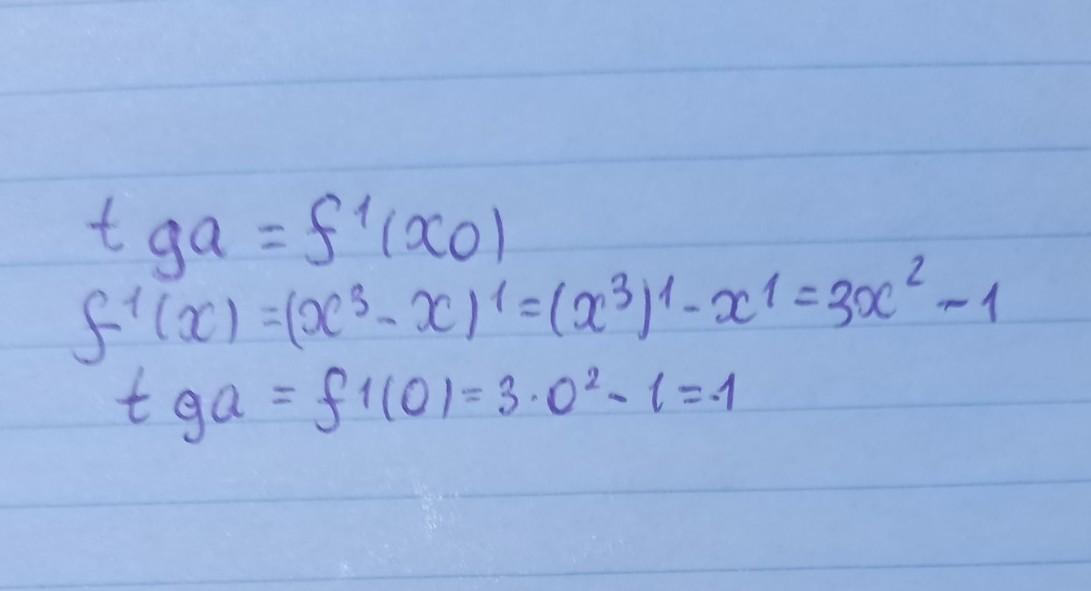 t ga = f¹(x0)
f¹(x) = (x³ - x)¹ = (x³)¹ - x¹ = 3x² - 1
t ga = f1(0) = 3·0² - 1 = -1